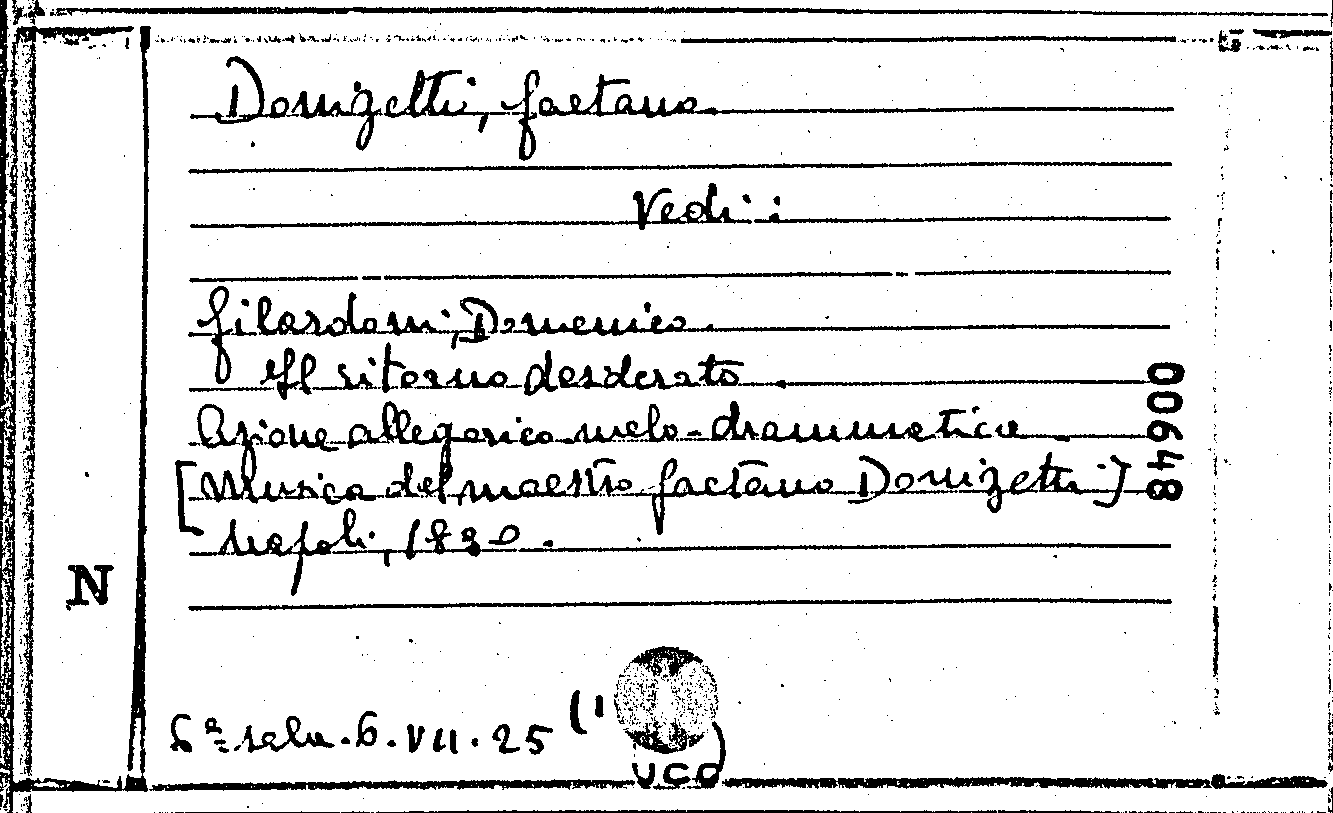 Donizetti, Gaetano.
Vedi:
Gilardoni, Domenico.
Il ritorno desiderato.
Azione allegorico-melo-drammatica.
[Musica del maestro Gaetano Donizetti]
Napoli, 1830.
N
00648
6ª sala. 6. VII. 25 (1
UCO